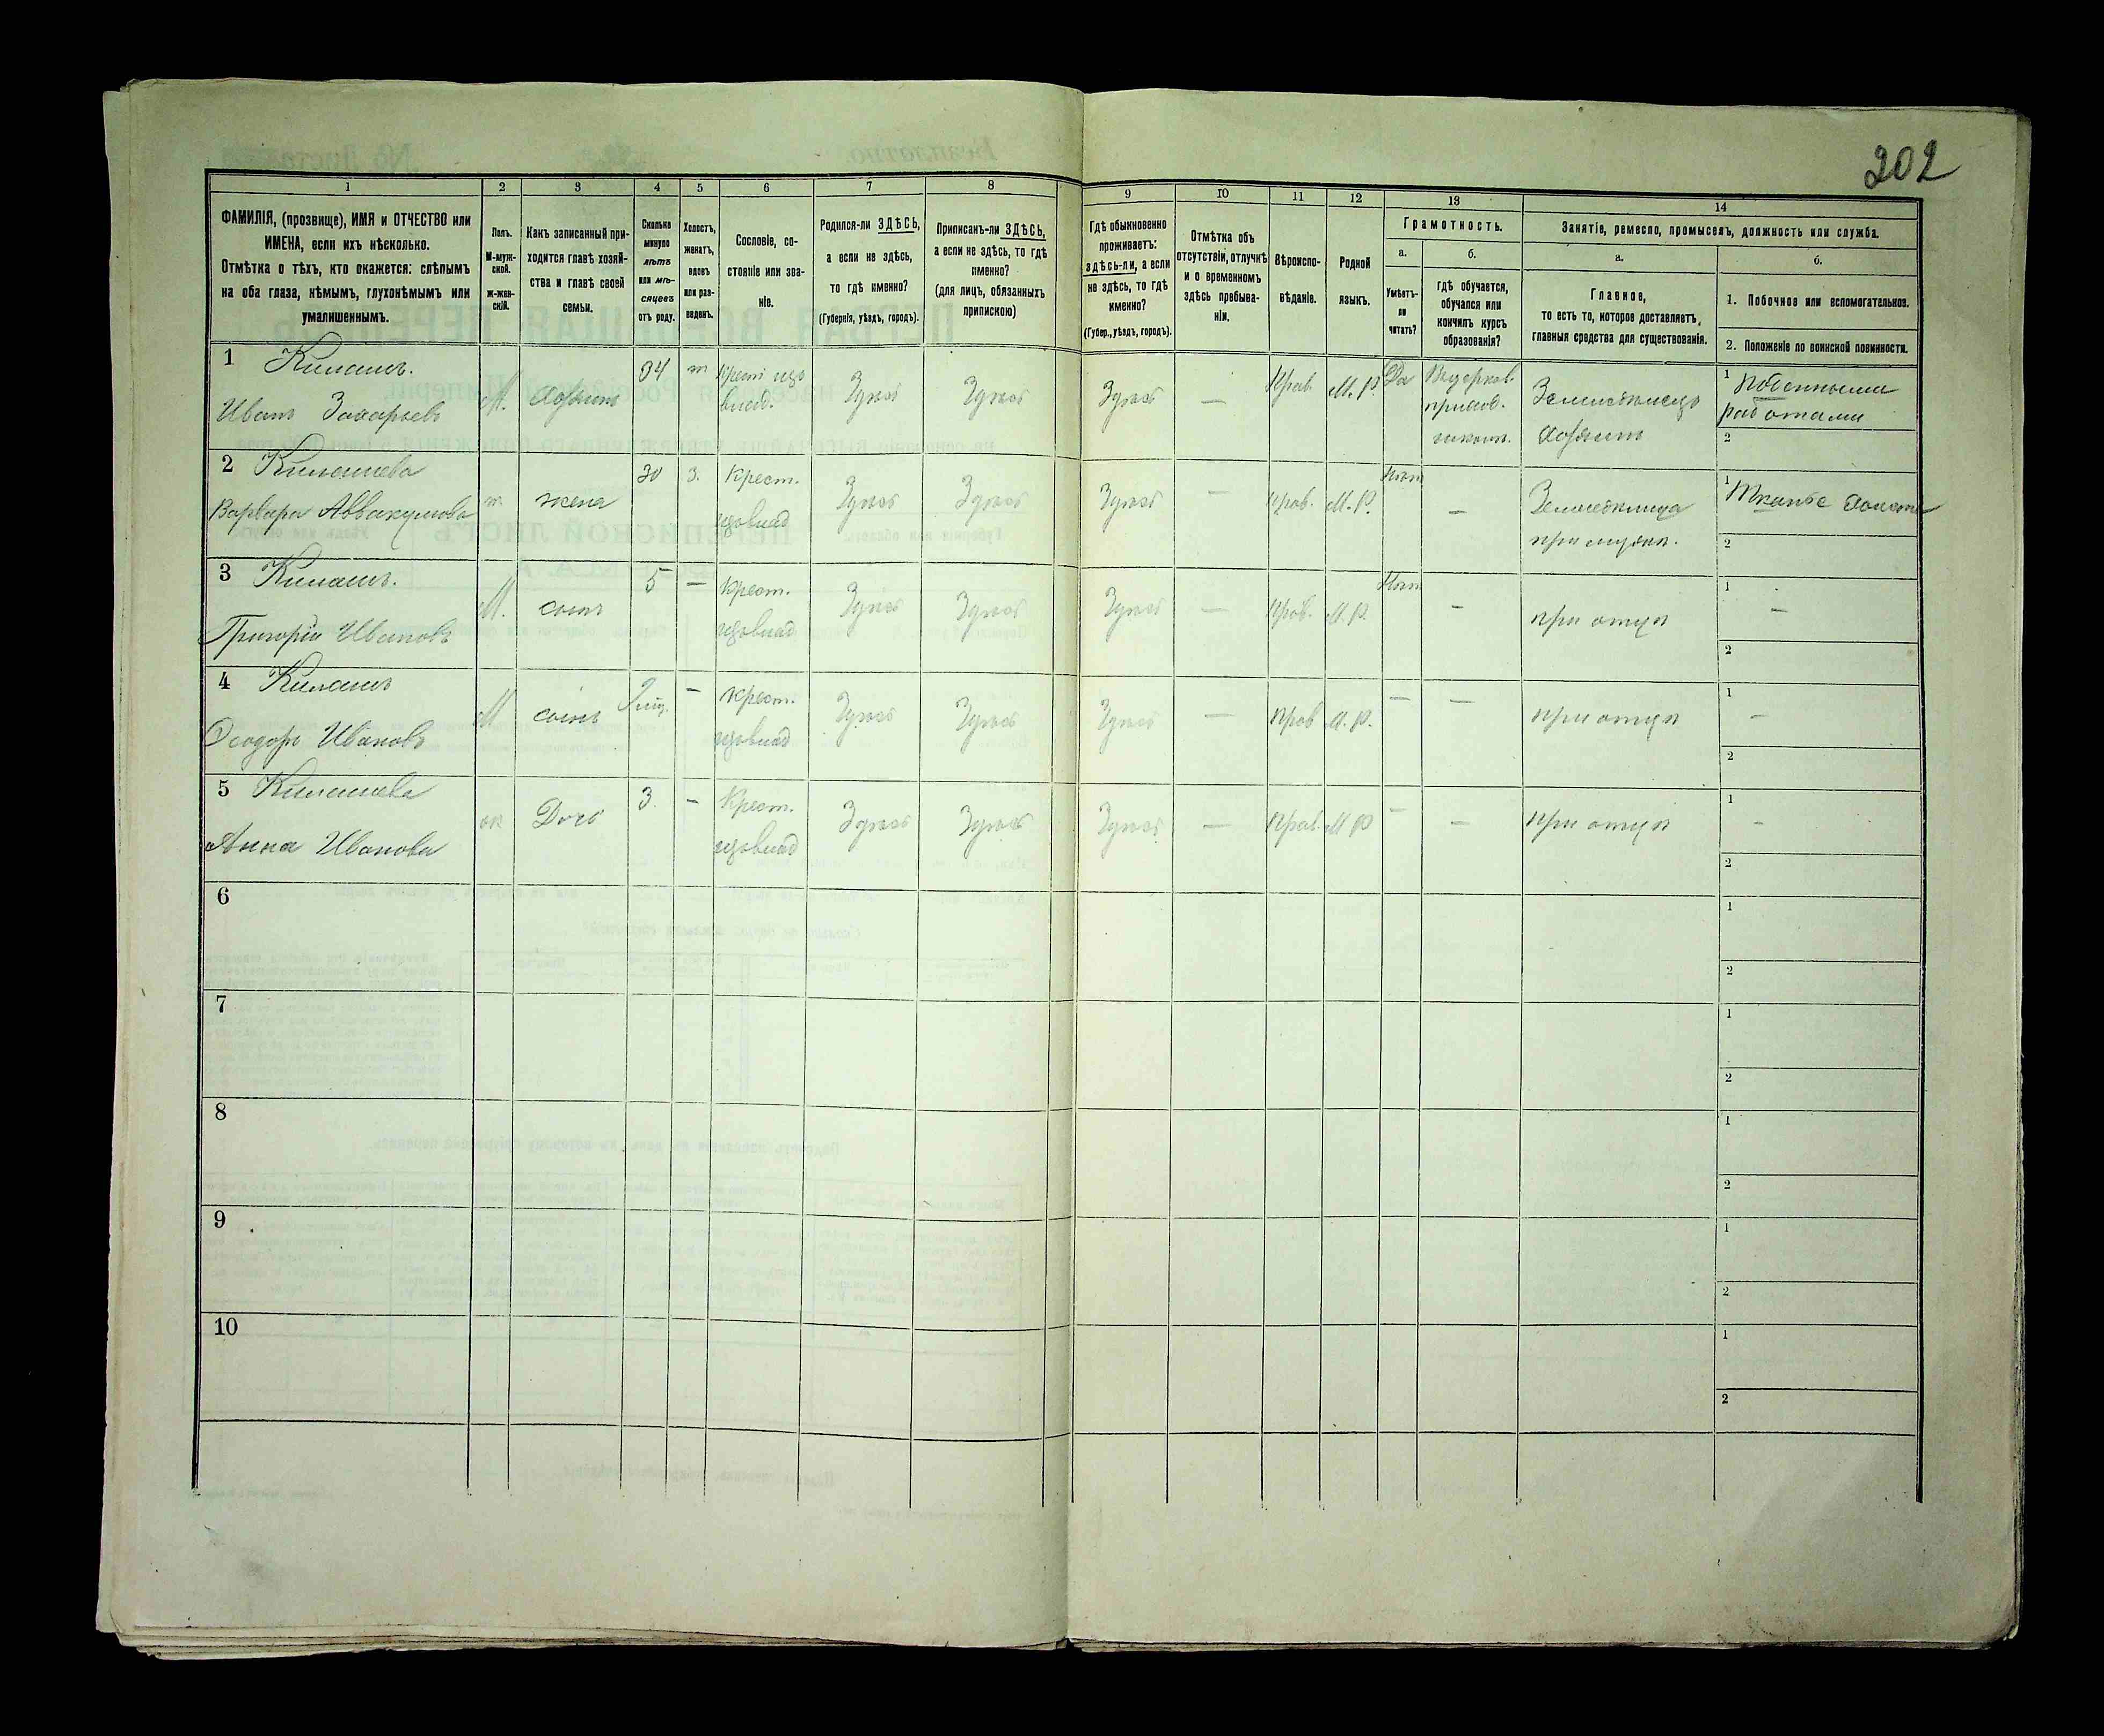 202
1
2
3
4
5
6
7
8
9
10
11
12
13
14
ФАМИЛІЯ, (прозвище), ИМЯ и ОТЧЕСТВО или
ИМЕНА, если ихъ нѣсколько.
Отмѣтка о тѣхъ, кто окажется: слѣпымъ
на оба глаза, нѣмымъ, глухонѣмымъ или
умалишеннымъ.
Полъ.
М-муж-
ской.
ж-жен-
скій.
Какъ записанный при-
ходится главѣ хозяй-
ства и главѣ своей
семьи.
Сколько
минуло
лѣтъ
или мѣ-
сяцевъ
отъ роду.
Холостъ,
женатъ,
вдовъ
или раз-
веденъ.
Сословіе, со-
стояніе или зва-
ніе.
Родился-ли ЗДѢСЬ,
а если не здѣсь,
то гдѣ именно?
(Губернія, уѣздъ, городъ).
Приписанъ-ли ЗДѢСЬ,
а если не здѣсь, то гдѣ
именно?
(для лицъ, обязанныхъ
припискою)
Гдѣ обыкновенно
проживаетъ:
здѣсь-ли, а если
не здѣсь, то гдѣ
именно?
(Губер., уѣздъ, городъ).
Отмѣтка объ
отсутствіи, отлучкѣ
и о временномъ
здѣсь пребыва-
ніи.
Вѣроиспо-
вѣданіе.
Родной
языкъ.
Грамотность.
а.
Умѣетъ-
ли
читать?
б.
гдѣ обучается,
обучался или
кончилъ курсъ
образованія?
Занятіе, ремесло, промыселъ, должность или служба.
а.
Главное,
то есть то, которое доставляетъ
главныя средства для существованія.
б.
1. Побочное или вспомогательное.
2. Положеніе по воинской повинности.
1 Килашъ.
Иванъ Захарьевъ
М. хозяинъ 34 ж
Здѣсь Здѣсь Здѣсь — Прав. М.Р. Да
Земледѣлецъ
хозяинъ
1 Поденными
работами
2
2 Килашева
Варвара Аввакумова
ж. жена 30 З. Крест.
Здѣсь Здѣсь Здѣсь — Прав. М.Р. Нѣт —
Земледѣлица
при мужѣ.
1 Тканье холста
2
3 Килашъ.
Григорій Ивановъ
М. сынъ 5 — Крест.
Здѣсь Здѣсь Здѣсь — Прав. М.Р. Нѣт —
при отцѣ
1 —
2
4 Килашъ
Ѳеодоръ Ивановъ
М сынъ — Крест.
Здѣсь Здѣсь Здѣсь — Прав М.Р. — —
при отцѣ
1 —
2
5 Килашева
Анна Иванова
ж Дочь 3. — Крест.
Здѣсь Здѣсь Здѣсь — Прав. М Р — —
при отцѣ
1 —
2
6
1
2
7
1
2
8
1
2
9
1
2
10
1
2